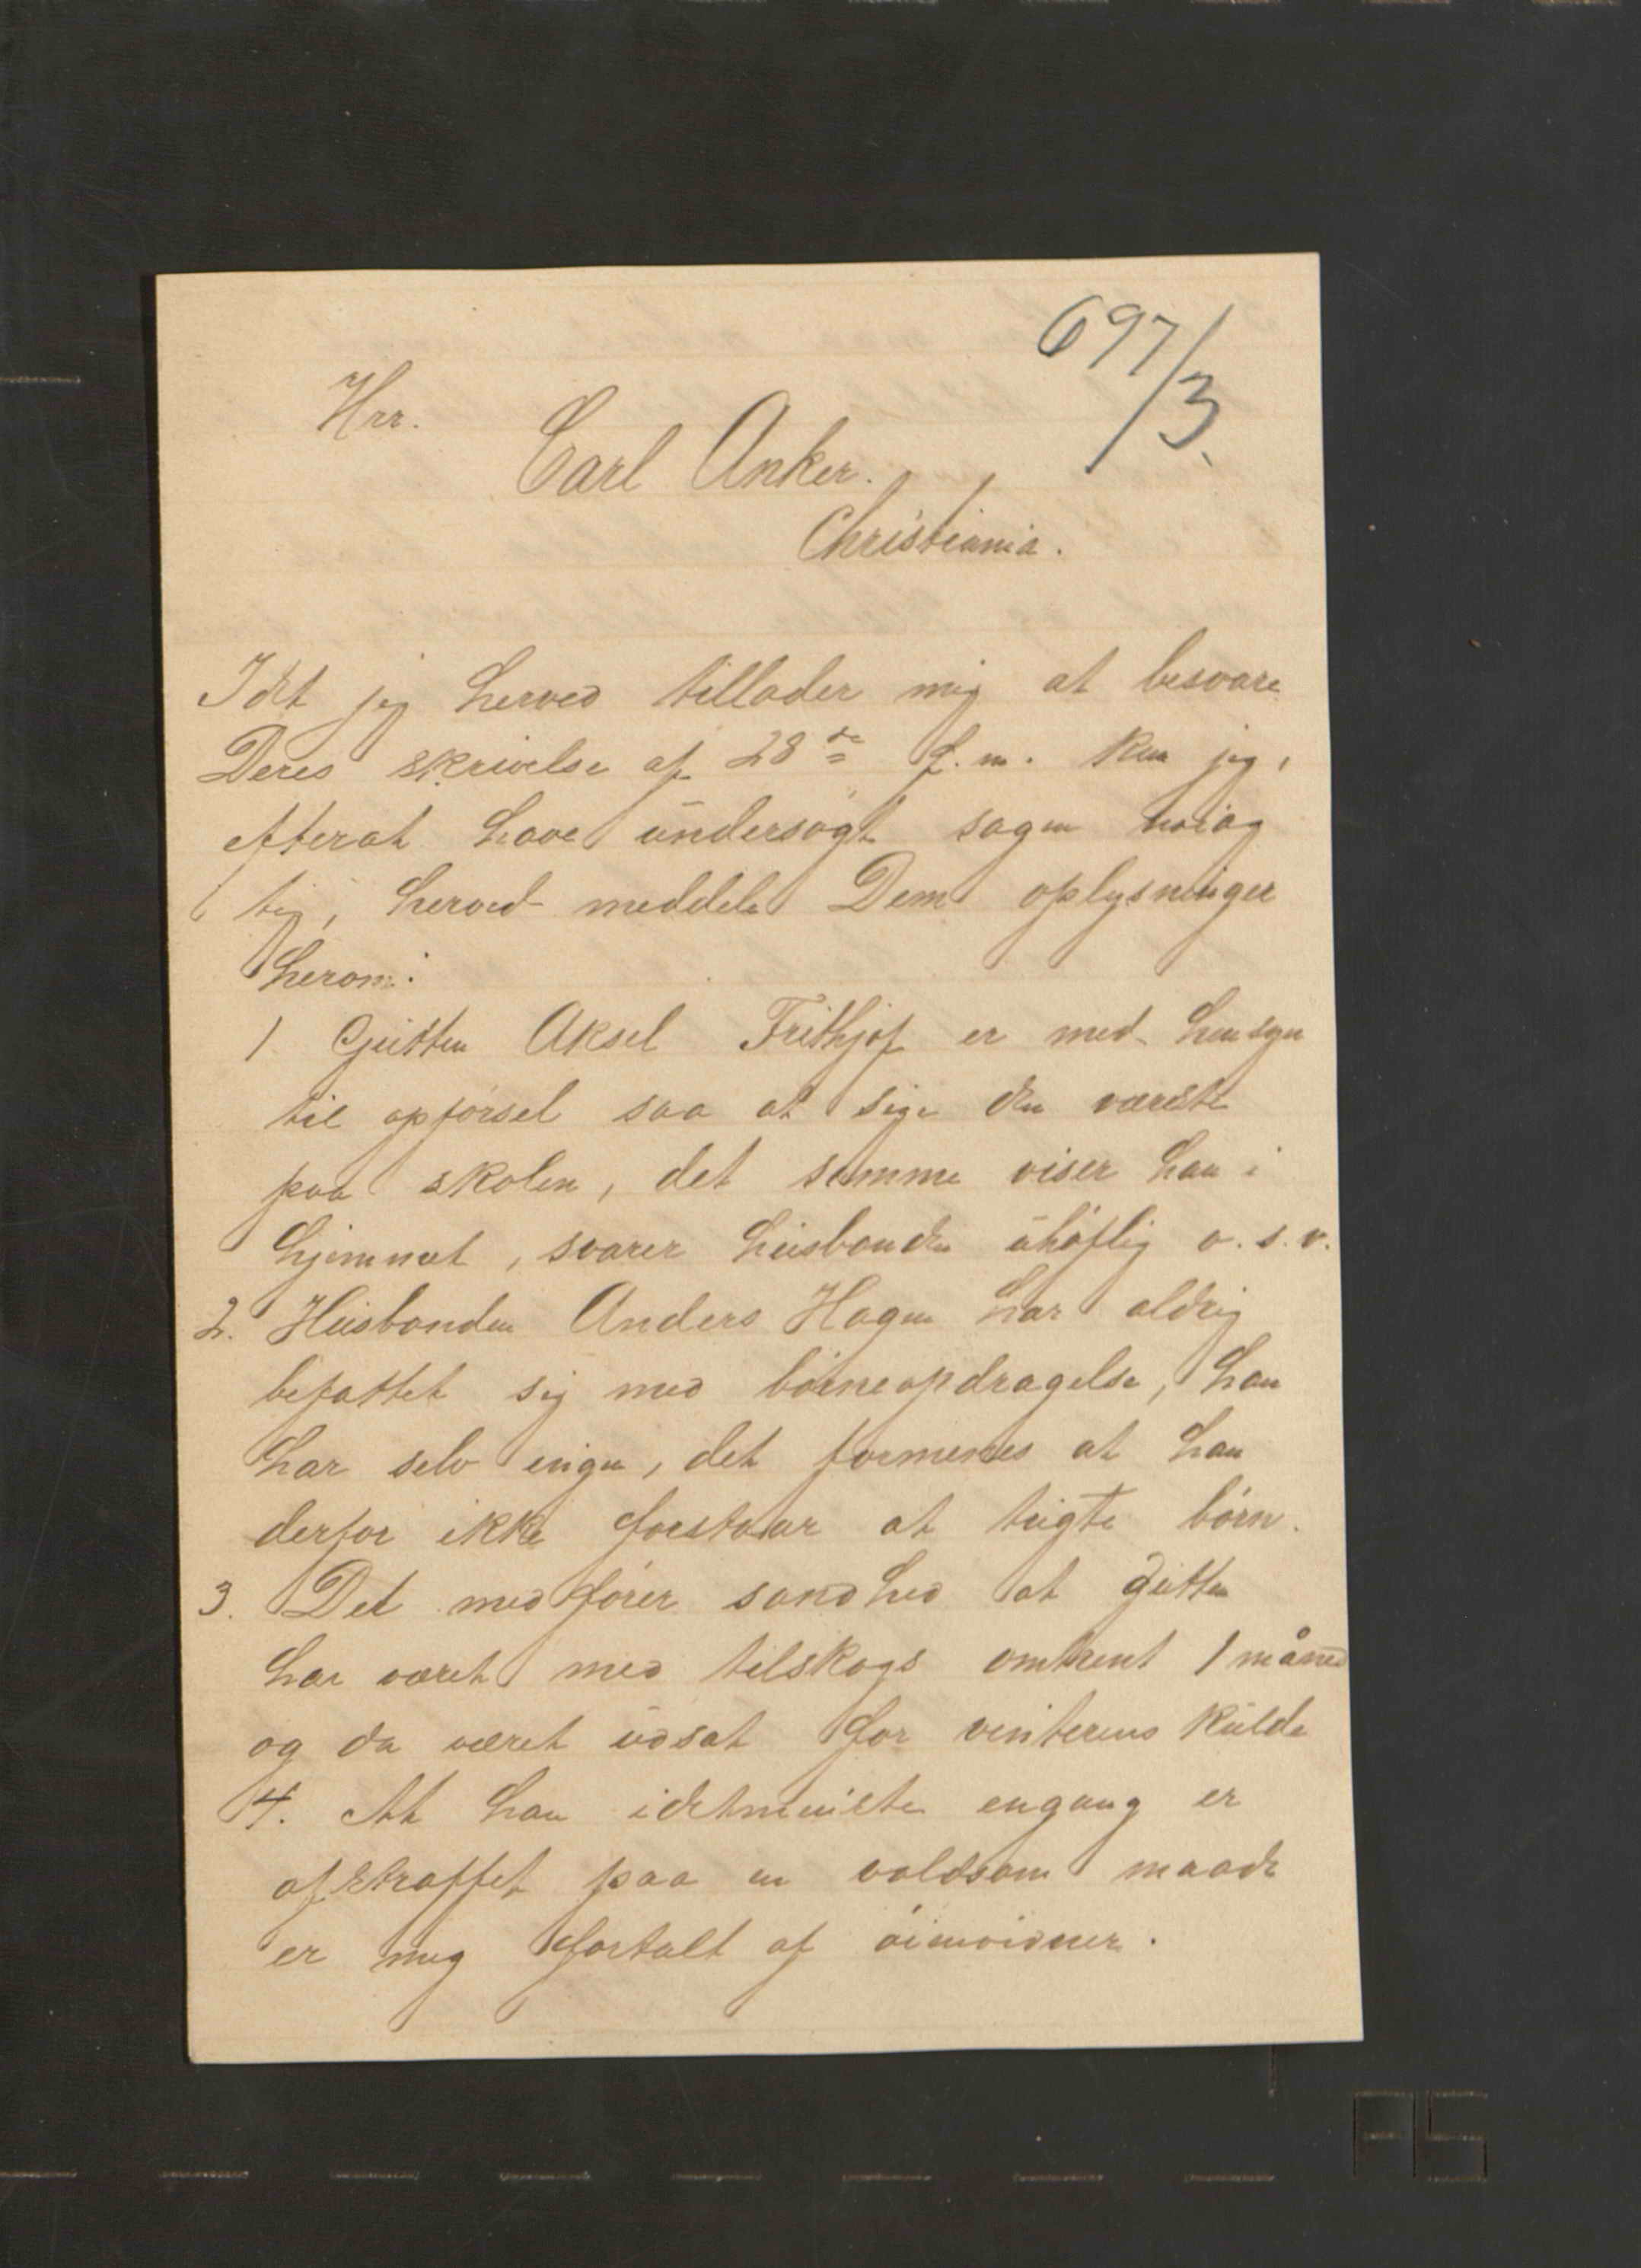 697/3.
Hrr.
Carl Anker.
Christiania.
Idet jeg herved tillader mig at besvare
Deres skrivelse af 28de f.m. kan jeg,
efterat have undersøgt sagen nøiag
tig, herved meddele Dem oplysninger
herom:
1 Gutten Aksel Frithjof er med hensyn
til opførsel saa at sige den værste
paa skolen, det samme viser han i
hjemmet, svarer husbonden uhøflig o.s.v.
2. Husbonden Anders Hagen har aldrig
befattet sig med børneopdragelse, han
har selv ingen, det formenes at han
derfor ikke forstaar at tugte børn.
3. Det medfører sandhed at gutten
har været med tilskogs omtrent 1 måned
og da været udsat for vinterens kulde
4. At han idetmindste engang er
afstraffet paa en voldsom maade
er mig fortalt af øienvidner.